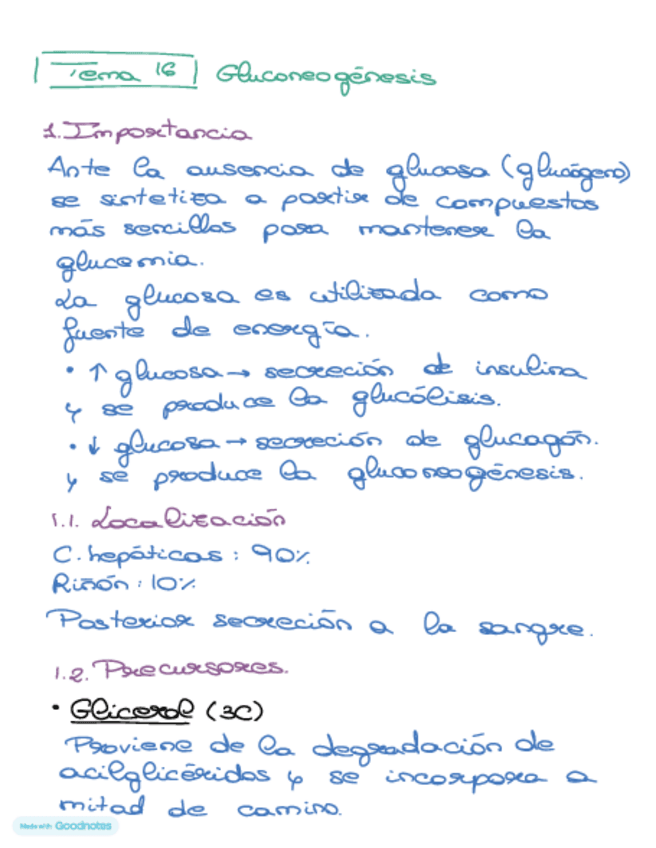 Tema 16 Gluconeogénesis
1. Importancia
Ante la ausencia de glucosa (glucógeno)
se sintetiza a partir de compuestos
más sencillos para mantener la
glucemia.
La glucosa es utilizada como
fuente de energía.
• ↑ glucosa → secreción de insulina
y se produce la glucólisis.
• ↓ glucosa → secreción de glucagón.
y se produce la gluconeogénesis.
1.1. Localización
C. hepáticas : 90%
Riñón : 10%
Posterior secreción a la sangre.
1.2. Precursores.
• Glicerol (3C)
Proviene de la degradación de
acilglicéridos y se incorpora a
mitad de camino.
Made with Goodnotes